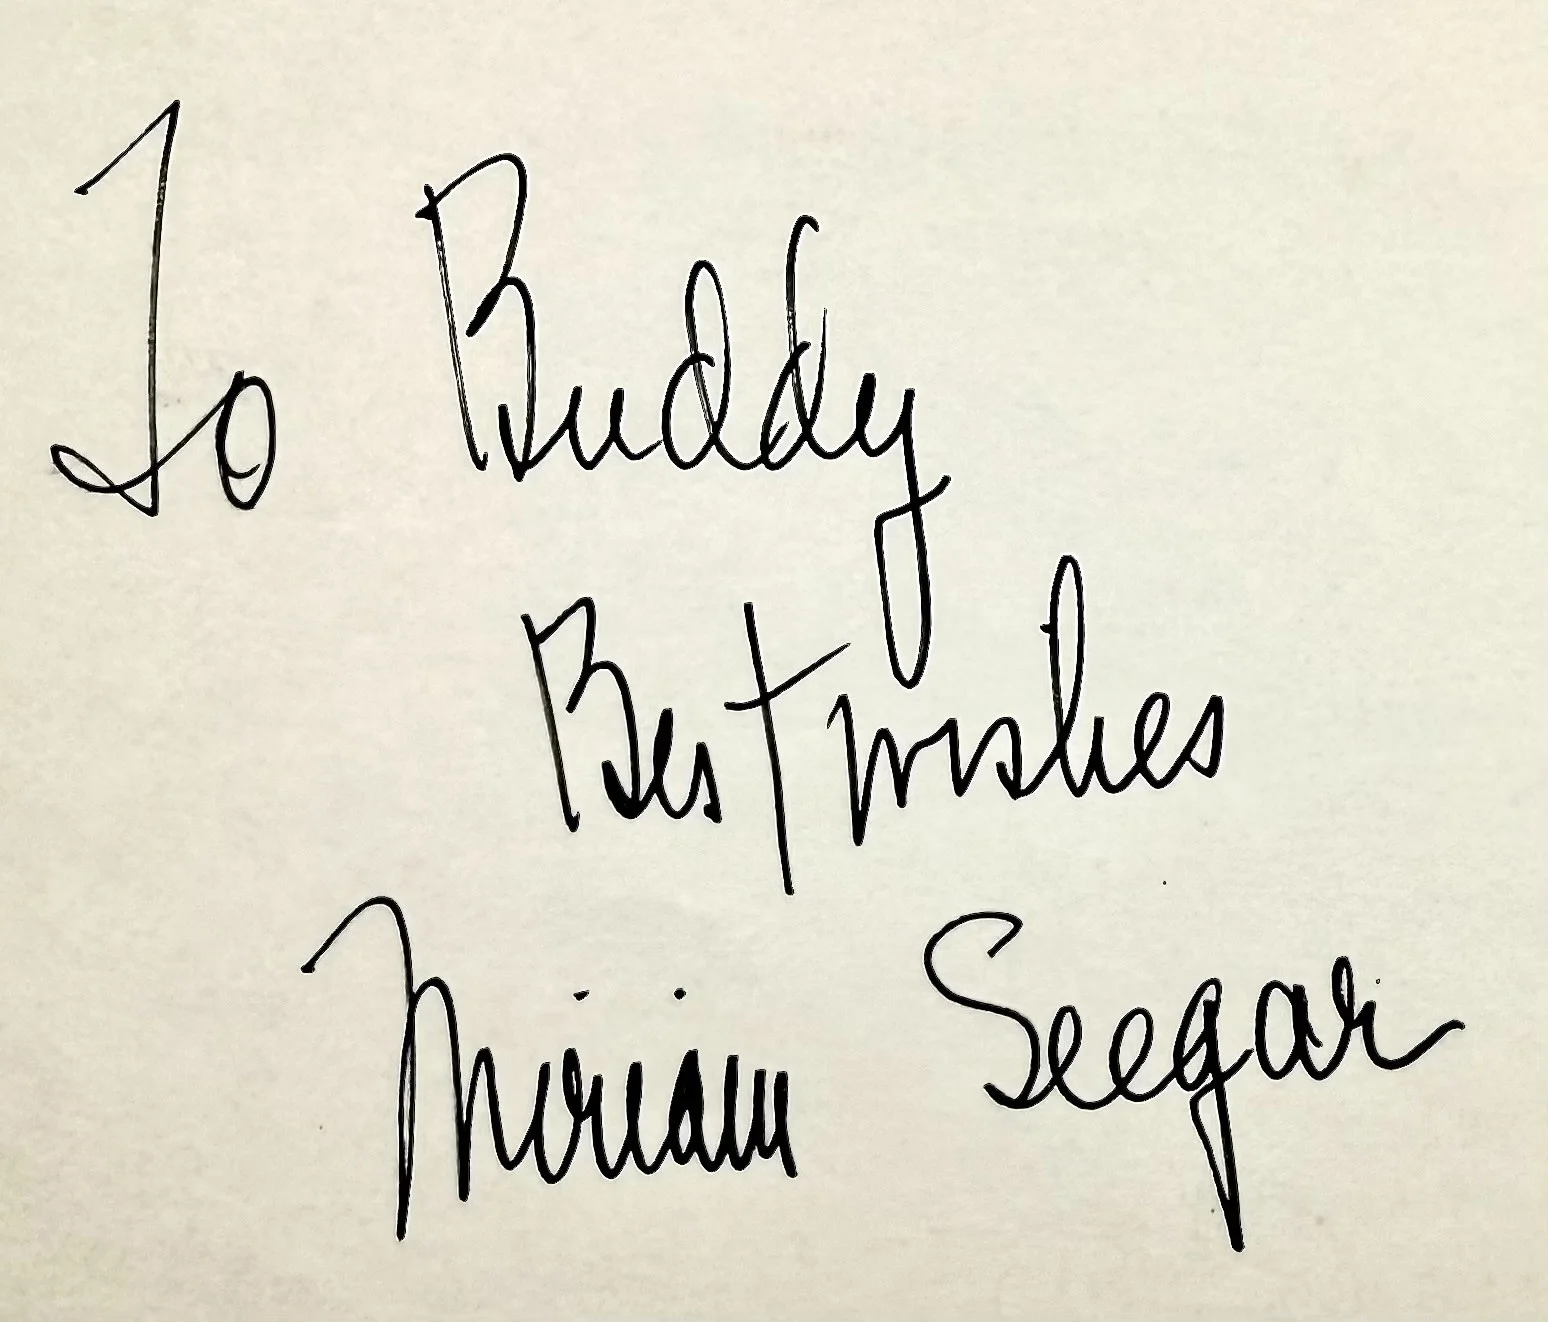 To Buddy
Best wishes
Miriam Seegar